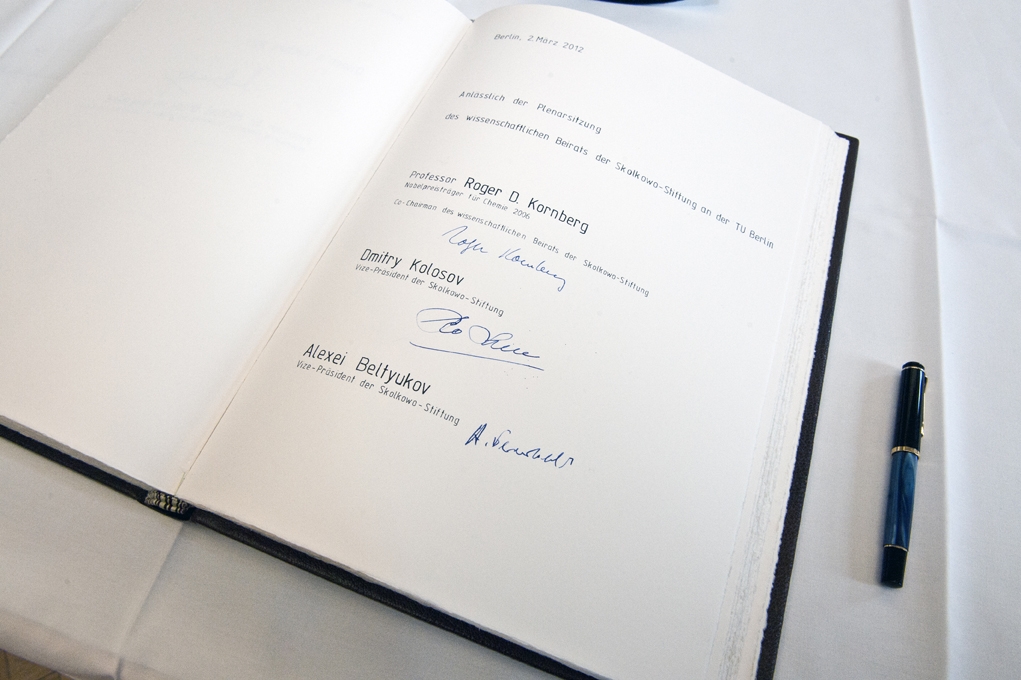 Berlin, 2.März 2012
Anlässlich der Plenarsitzung
des wissenschaftlichen Beirats der Skolkowo-Stiftung an der TU Berlin
Professor Roger D. Kornberg
Nobelpreisträger für Chemie 2006
Co-Chairman des wissenschaftlichen Beirats der Skolkowo-Stiftung
Roger Kornberg
Dmitry Kolosov
Vize-Präsident der Skolkowo-Stiftung
Alexei Beltyukov
Vize-Präsident der Skolkowo-Stiftung